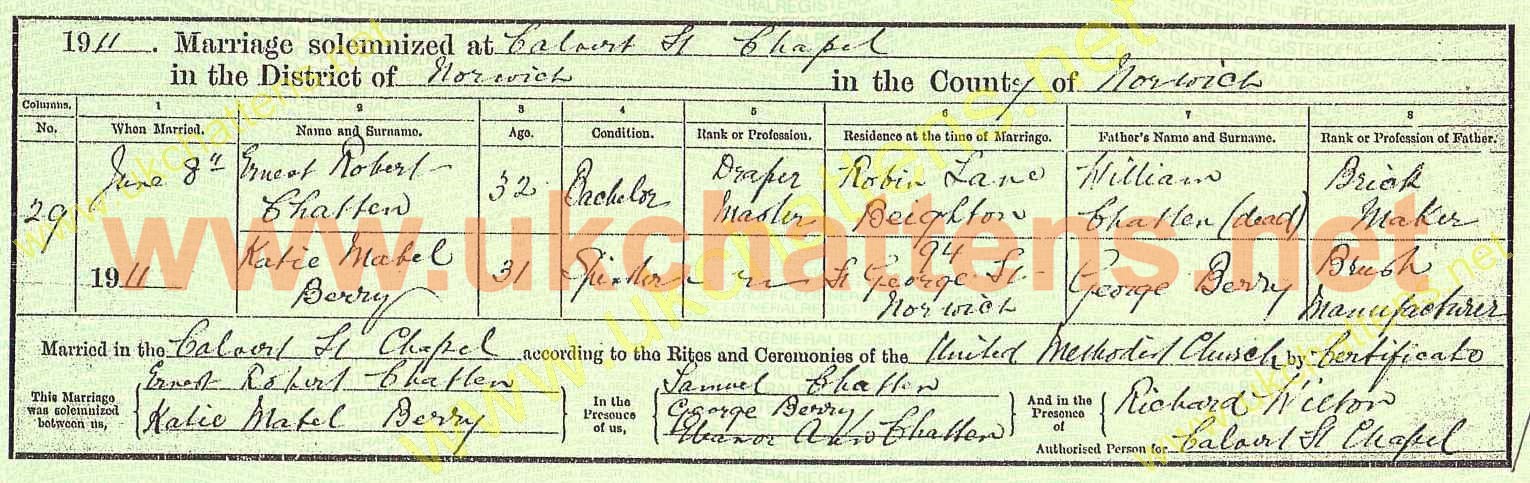 1911. Marriage solemnized at Calvert St Chapel
in the District of Norwich in the County of Norwich
Columns. 1 2 3 4 5 6 7 8
No. When Married. Name and Surname. Age. Condition. Rank or Profession. Residence at the time of Marriage. Father's Name and Surname. Rank or Profession of Father.
29 June 8th 1911 Ernest Robert Chatten 32 Bachelor Draper Master Robin Lane Beighton William Chatten (dead) Brick Maker
Katie Mabel Berry 31 Spinster 94 St George St Norwich George Berry Brush Manufacturer
Married in the Calvert St Chapel according to the Rites and Ceremonies of the United Methodist Church by Certificate
This Marriage was solemnized between us,
Ernest Robert Chatten
Katie Mabel Berry
In the Presence of us,
Samuel Chatten
George Berry
Eleanor Ann Chatten
And in the Presence of
Richard Wilton
Authorised Person for Calvert St Chapel
www.ukchattens.net